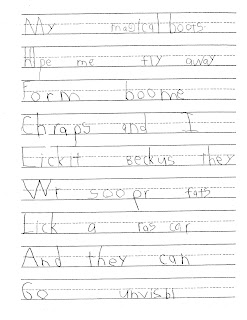 My magical boots
Hlpe me fly away
Form boome
Chraps and I
Lickit beckus they
Wr soopr fats
Lick a ras car
And they can
Go unvisbl